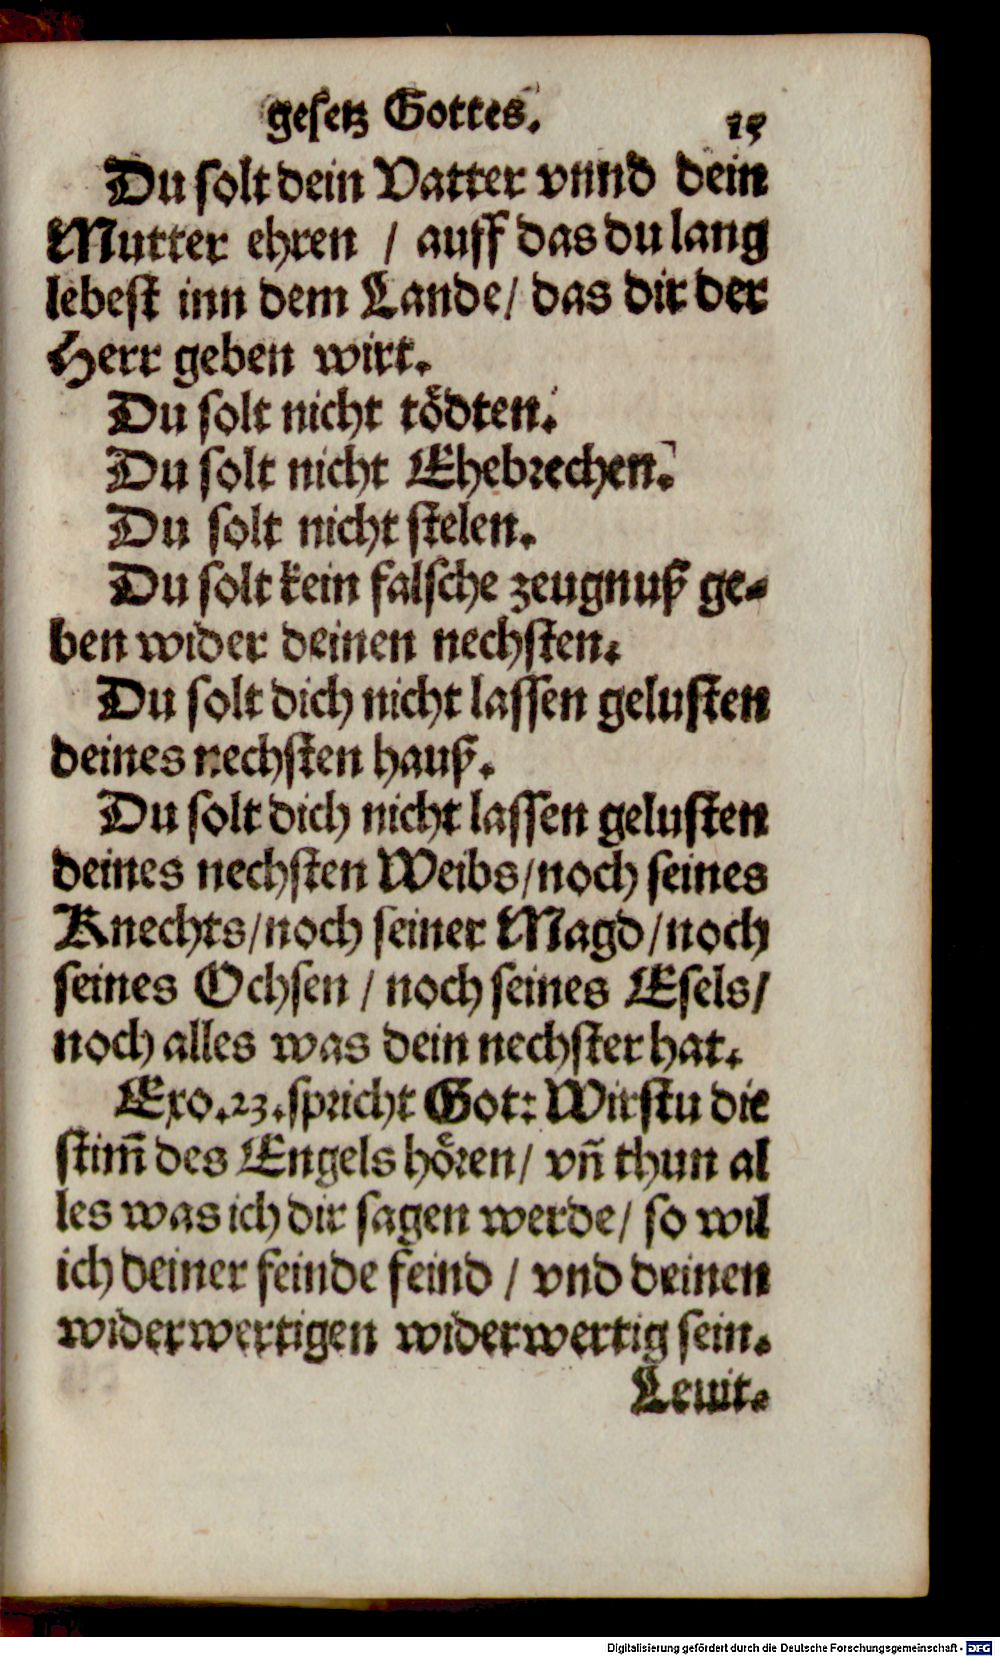 gesetz Gottes. 15
Du solt dein Vatter vnnd dein
Mutter ehren / auff das du lang
lebest inn dem Lande / das dir der
Herr geben wirt.
Du solt nicht tödten.
Du solt nicht Ehebrechen.
Du solt nicht stelen.
Du solt kein falsche zeugnuß ge-
ben wider deinen nechsten.
Du solt dich nicht lassen gelusten
deines nechsten hauß.
Du solt dich nicht lassen gelusten
deines nechsten Weibs / noch seines
Knechts / noch seiner Magd / noch
seines Ochsen / noch seines Esels /
noch alles was dein nechster hat.
Exo. 23. spricht Got: Wirstu die
stim̃ des Engels hören / vñ thun al
les was ich dir sagen werde / so wil
ich deiner feinde feind / vnd deinen
widerwertigen widerwertig sein.
Leuit.
Digitalisierung gefördert durch die Deutsche Forschungsgemeinschaft - DFG